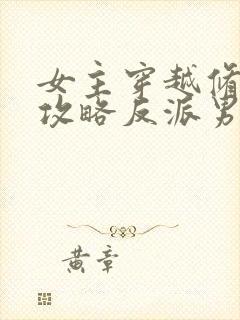 女主穿越修
攻略反派男
黄章